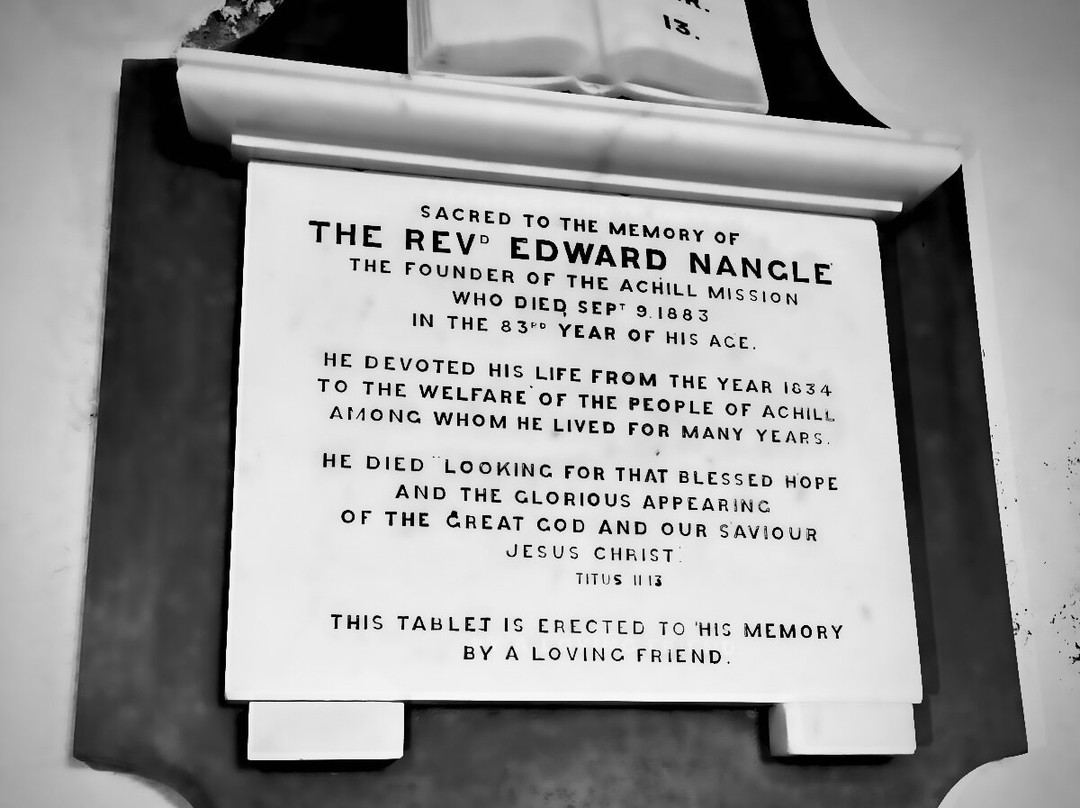 13.
SACRED TO THE MEMORY OF
THE REVD EDWARD NANGLE
THE FOUNDER OF THE ACHILL MISSION
WHO DIED, SEPT 9. 1883
IN THE 83RD YEAR OF HIS AGE.
HE DEVOTED HIS LIFE FROM THE YEAR 1834
TO THE WELFARE OF THE PEOPLE OF ACHILL
AMONG WHOM HE LIVED FOR MANY YEARS.
HE DIED "LOOKING FOR THAT BLESSED HOPE
AND THE GLORIOUS APPEARING
OF THE GREAT GOD AND OUR SAVIOUR
JESUS CHRIST."
TITUS II 13
THIS TABLET IS ERECTED TO HIS MEMORY
BY A LOVING FRIEND.